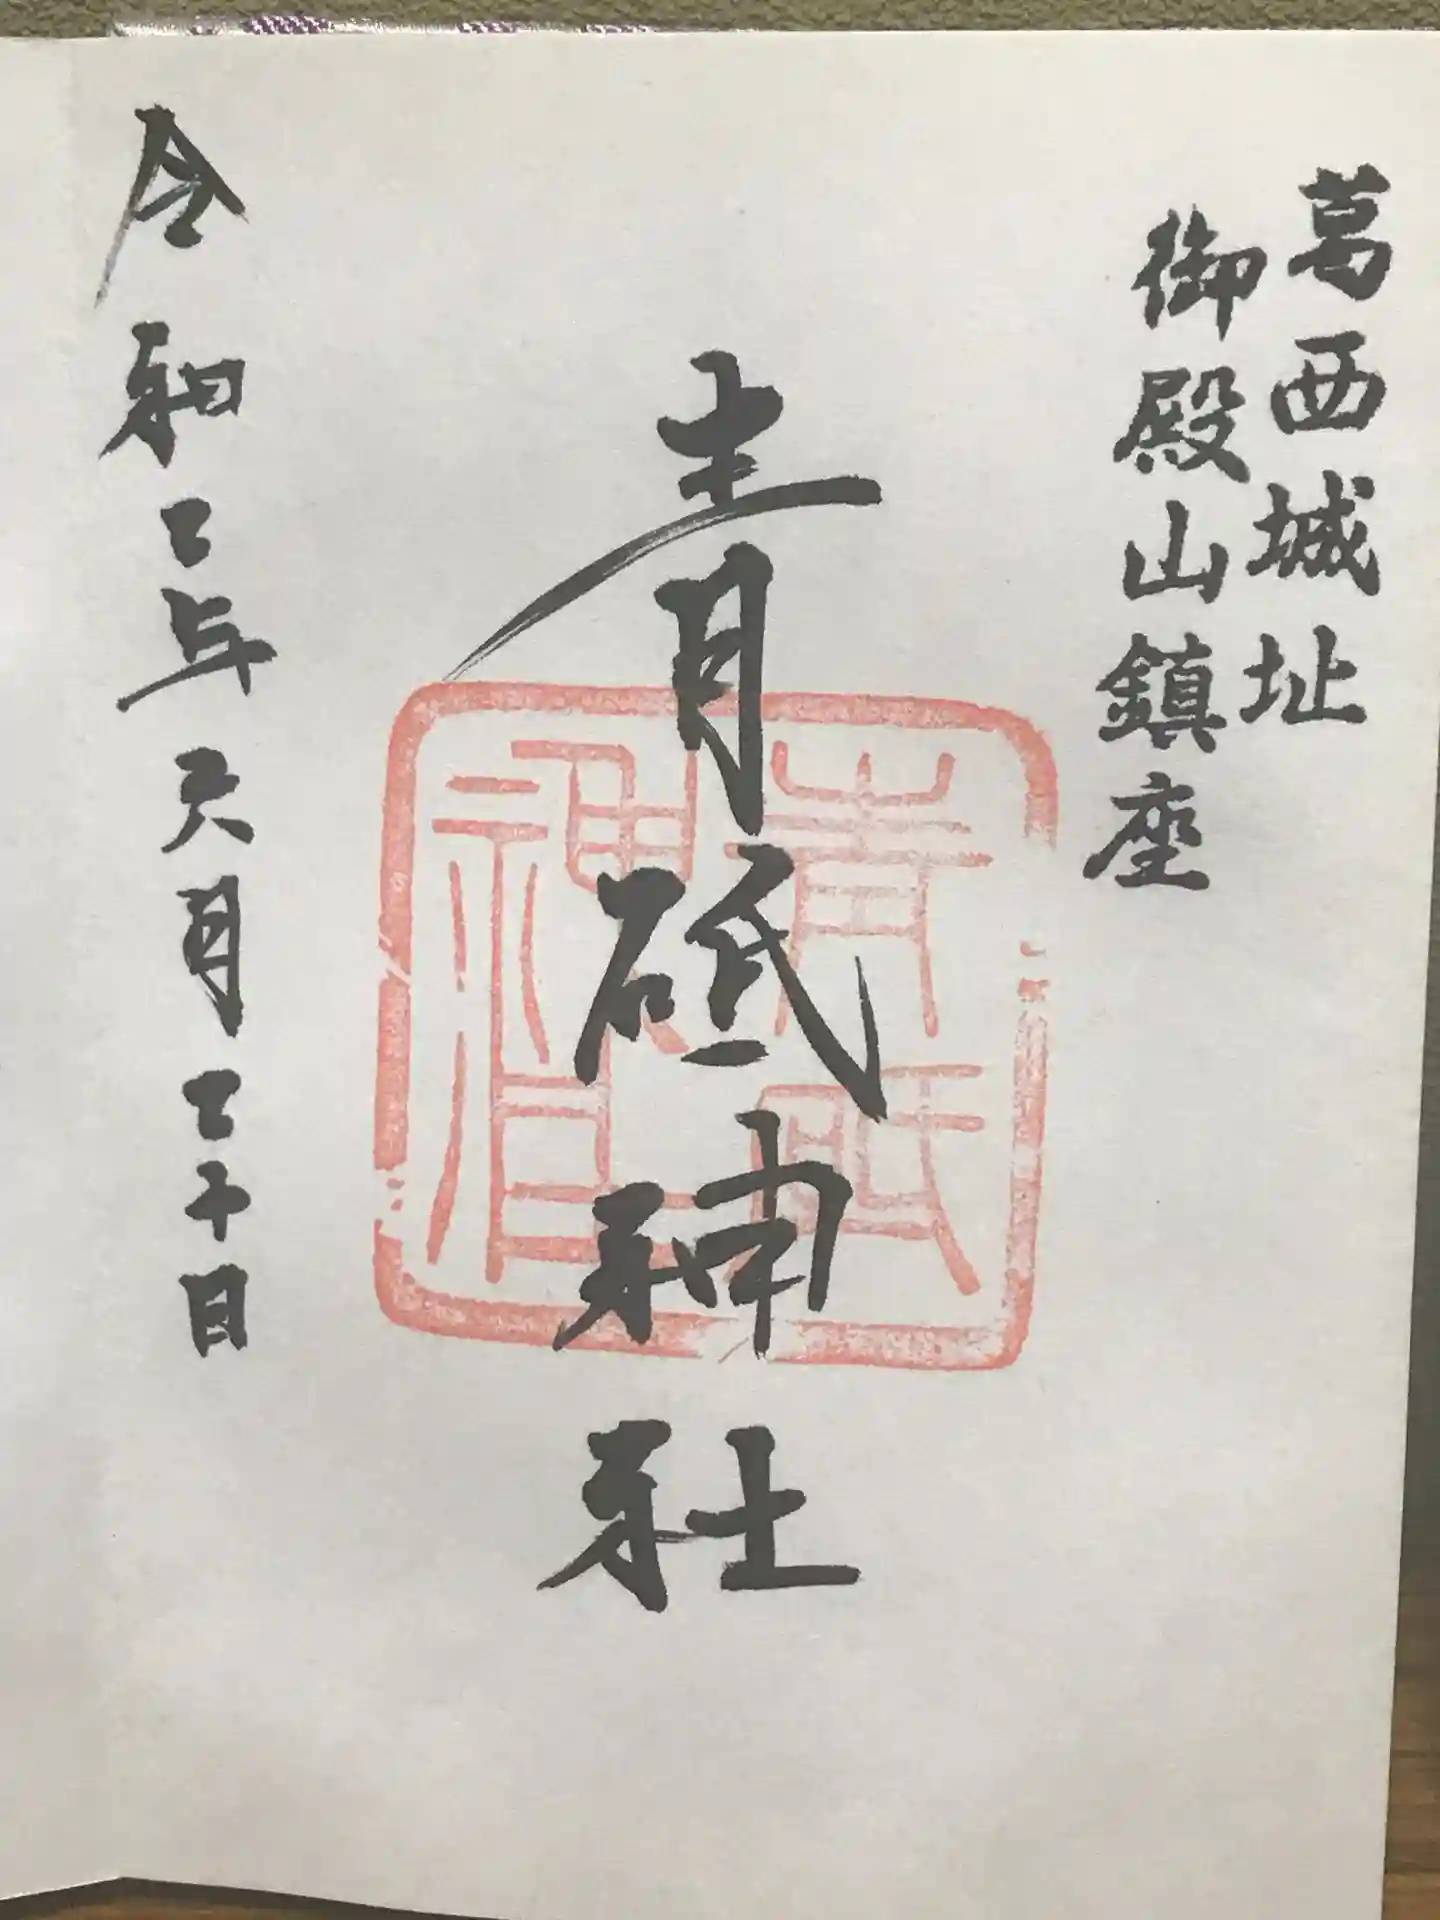 葛西城址
御殿山鎮座
青砥神社
令和二年六月二十日
青砥
神社